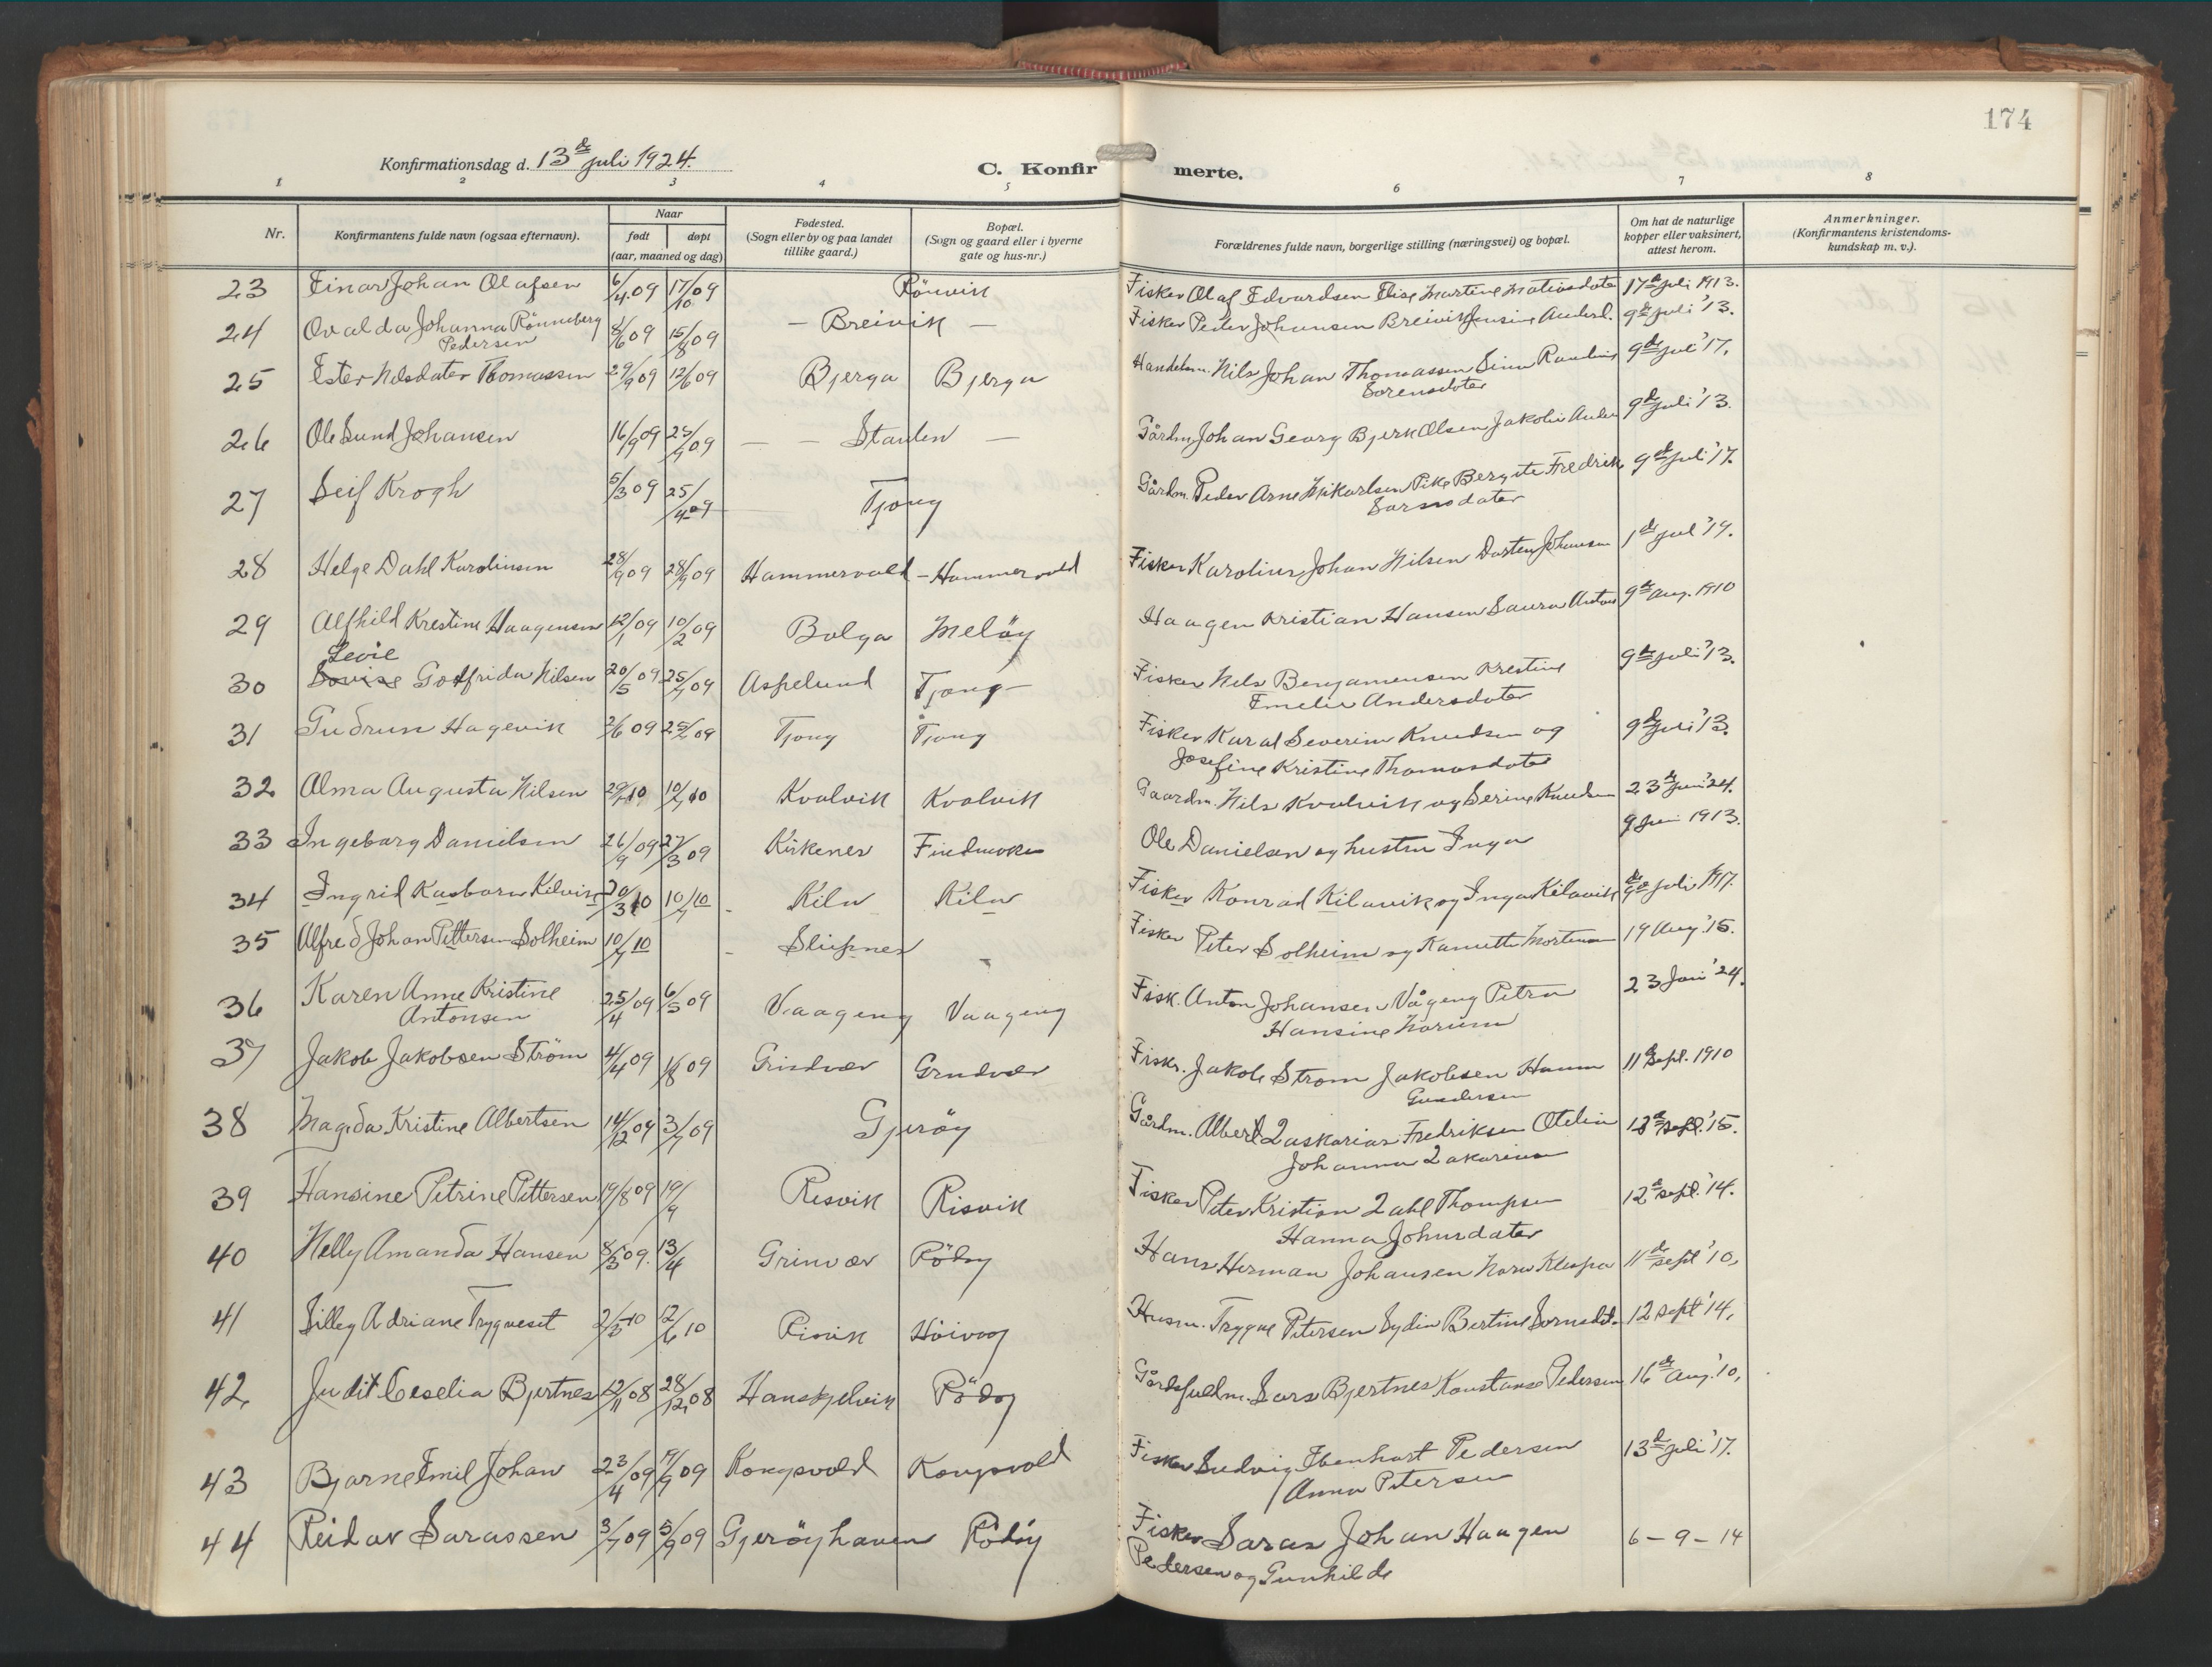 174
Konfirmationsdag d. 13de juli 1924.
C. Konfirmerte.
1 2 3 4 5 6 7 8
Nr.
Konfirmantens fulde navn (ogsaa efternavn).
Naar
født døpt
(aar, maaned og dag)
Fødested.
(Sogn eller by og paa landet
tillike gaard.)
Bopæl.
(Sogn og gaard eller i byerne
gate og hus-nr.)
Forældrenes fulde navn, borgerlige stilling (næringsvei) og bopæl.
Om hat de naturlige
kopper eller vaksinert,
attest herom.
Anmerkninger.
(Konfirmantens kristendoms-
kundskap m. v.).
23 Einar Johan Olafsen 6/4 09 17/10 09 Rönvik Fisker Olaf Edvardsen Elise Martine Matiasdate 17de juli 1913.
24 Ovalda Johanna Rönneberg 8/6 09 15/8 09 — Breivik — Fisker Peder Johansen Breivik Jensine Andersd. 9de juli '13.
Pedersen
25 Ester Nilsdater Thomassen 29/9 09 12/6 09 Bjerga Bjerga Handelsm. Nils Johan Thomassen 9de juli '17.
Sorensdater
26 Ole Lund Johansen 16/9 09 25/7 09 — — Staulen — Gårdm. Johan Georg Bjerk Olsen Jakobin 9de juli '13.
27 Leif Krogh 5/3 09 25/4 09 Tjong Gårdm. Peder Arne Pike Bergite Fredrik 9de juli '17.
28 Helge Dahl Karolinsen 28/9 09 28/9 09 Hammervold - Hammervold Fisker Karolius Johan Nilsen Johansen 1de jul '19.
29 Alfhild Krestine Haagensen 12/1 09 10/2 09 Bolga Meløy Haagen Kristian Hansen Laura 9de aug. 1910
Levie
30 Lovise Godfrida Nilsen 20/5 09 25/7 09 Aspelund Tjong - Fisker Nils Benjamensen Krestine 9de juli '13.
Emelie Andersdater
31 Gudrun Hagevik 2/6 09 25/7 09 Tjong Tjong Fisker Karal Severin Knudsen og 9de juli '13.
Josefine Kristine Thomasdater
32 Alma Augusta Nilsen 29/1 10 10/7 10 Kvalvik Kvalvik Gaardm. Nils Kvalvik og Serine Knudsen 23de juni '24.
33 Ingeborg Danielsen 26/9 09 27/3 09 Kirkenes Findmoken Ole Danielsen og hustru Inga 9 juni 1913.
34 Ingrid Kasbara Kilvik 20/3 10 10/7 10 - Kila Kila Fisker Konrad Kilavik og Inga Kilavik 9de juli 1917.
35 Alfred Johan Pettersen Solheim 10/7 10 - Sleipnes Fisker Peter Solheim og Kanutte Mortensen 19 Aug. '15.
36 Karen Anne Kristine 25/4 09 6/5 09 Vaageng Vaageng Fisk. Anton Johansen Vågeng Petra 23 Jan '24.
Antonsen Hansine
37 Jakob Jakobsen Ström 4/4 09 1/8 09 Grindvær Grndvær Fisk. Jakob Strøm Jakobsen Hanna 11 Sept. 1910
Gundersen
38 Magda Kristine Albertsen 14/12 09 3/7 09 Gjerøy Gårdm. Albert Zaskarias Fredriksen Otelin 13de sept. '15.
Johanna Zakariasen
39 Hansine Petrine Pettersen 19/8 09 19/9 Resvik Risvik Fisker Peter Kristian Zahl Thompsen 12te sept. '14.
Hanna Johnsdater
40 Nelly Amanda Hansen 8/3 09. 13/4 Grinvær Rödøy Hans Herman Johansen Nora Klespa 11de sept '10,
41 Lilley Adriane Trygveset 2/3 10 12/6 10 Risvik Höivag Husm. Trygve Petersen Lydia Bertine Sornsdt. 12 sept '14,
42 Judit Ceselia Bjertnes 12/11 08 28/12 08 Hanskjelvik Rödøy Lars Bjertnes Konstanse Pedersen 16de aug. '10,
43 Bjarne Emil Johan 23/4 09 9/9 09 Kongsvold Kongsvold Fisker Ludvig Ebenhart Pedersen 13de juli '17.
/ Anna Petersen
44 Reidar Larassen 3/7 09 5/9 09 Gjerøyhavn Rødøy Fisker Laras Johan Haagen 6 - 9 - 14
Pedersen og Gunhilde